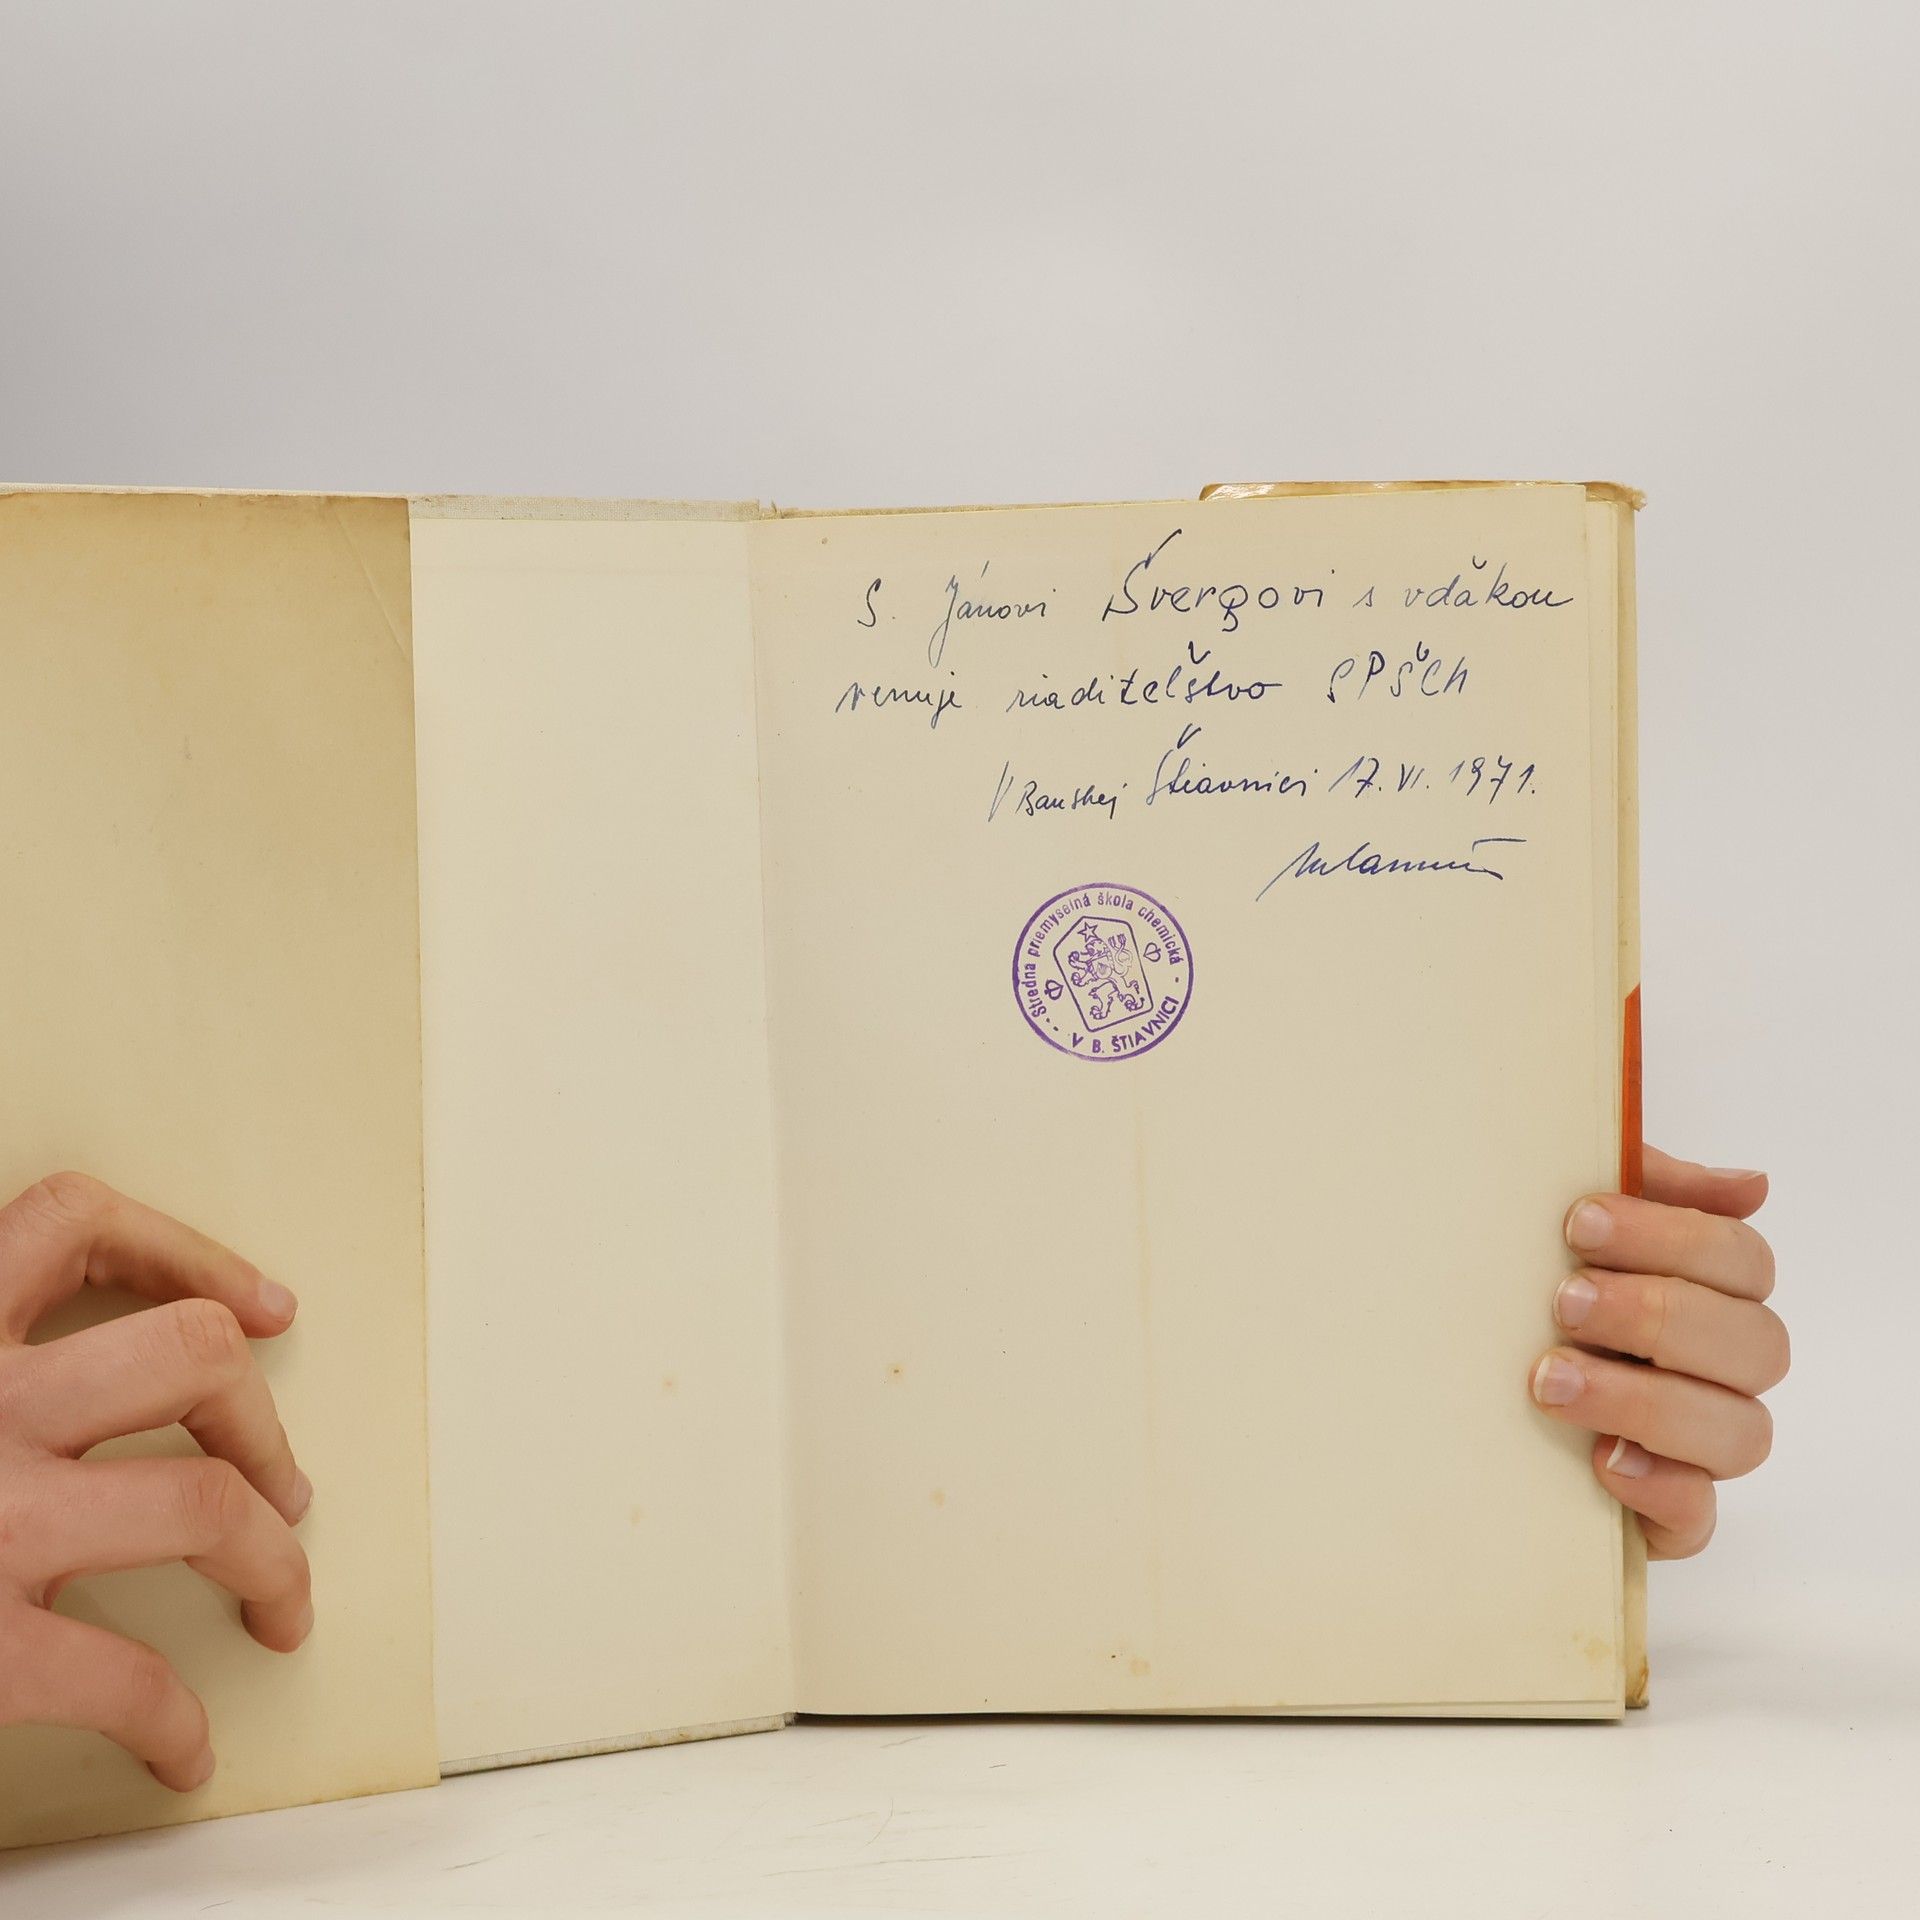 S. Jánovi Švergovi s vďakou
venuje riaditeľstvo SPŠCH
V Banskej Štiavnici 17. VI. 1971.
Stredná priemyselná škola chemická
V B. ŠTIAVNICI